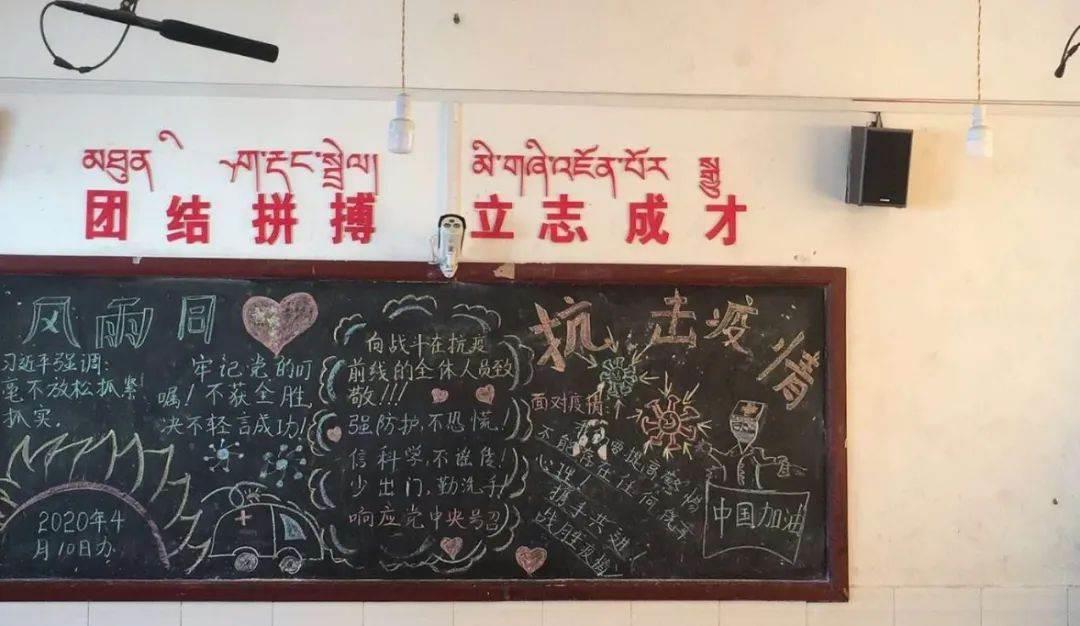 མཐུན
སྒྲིལ།
མི་གཞི་འཛོན་པོར
团结拼搏 立志成才
风雨同
抗击疫情
习近平强调:
毫不放松抓紧!
抓实.
牢记党的叮
嘱!不获全胜,
决不轻言成功!
2020年4
月10日办
向战斗在抗疫
前线的全体人员致
敬!!!
强防护,不恐慌!
信科学,不谣传!
少出门,勤洗手!
响应党中央号召
面对疫情:
提高警惕
不能存在任何侥幸
心理!
携手共进!
中国加油